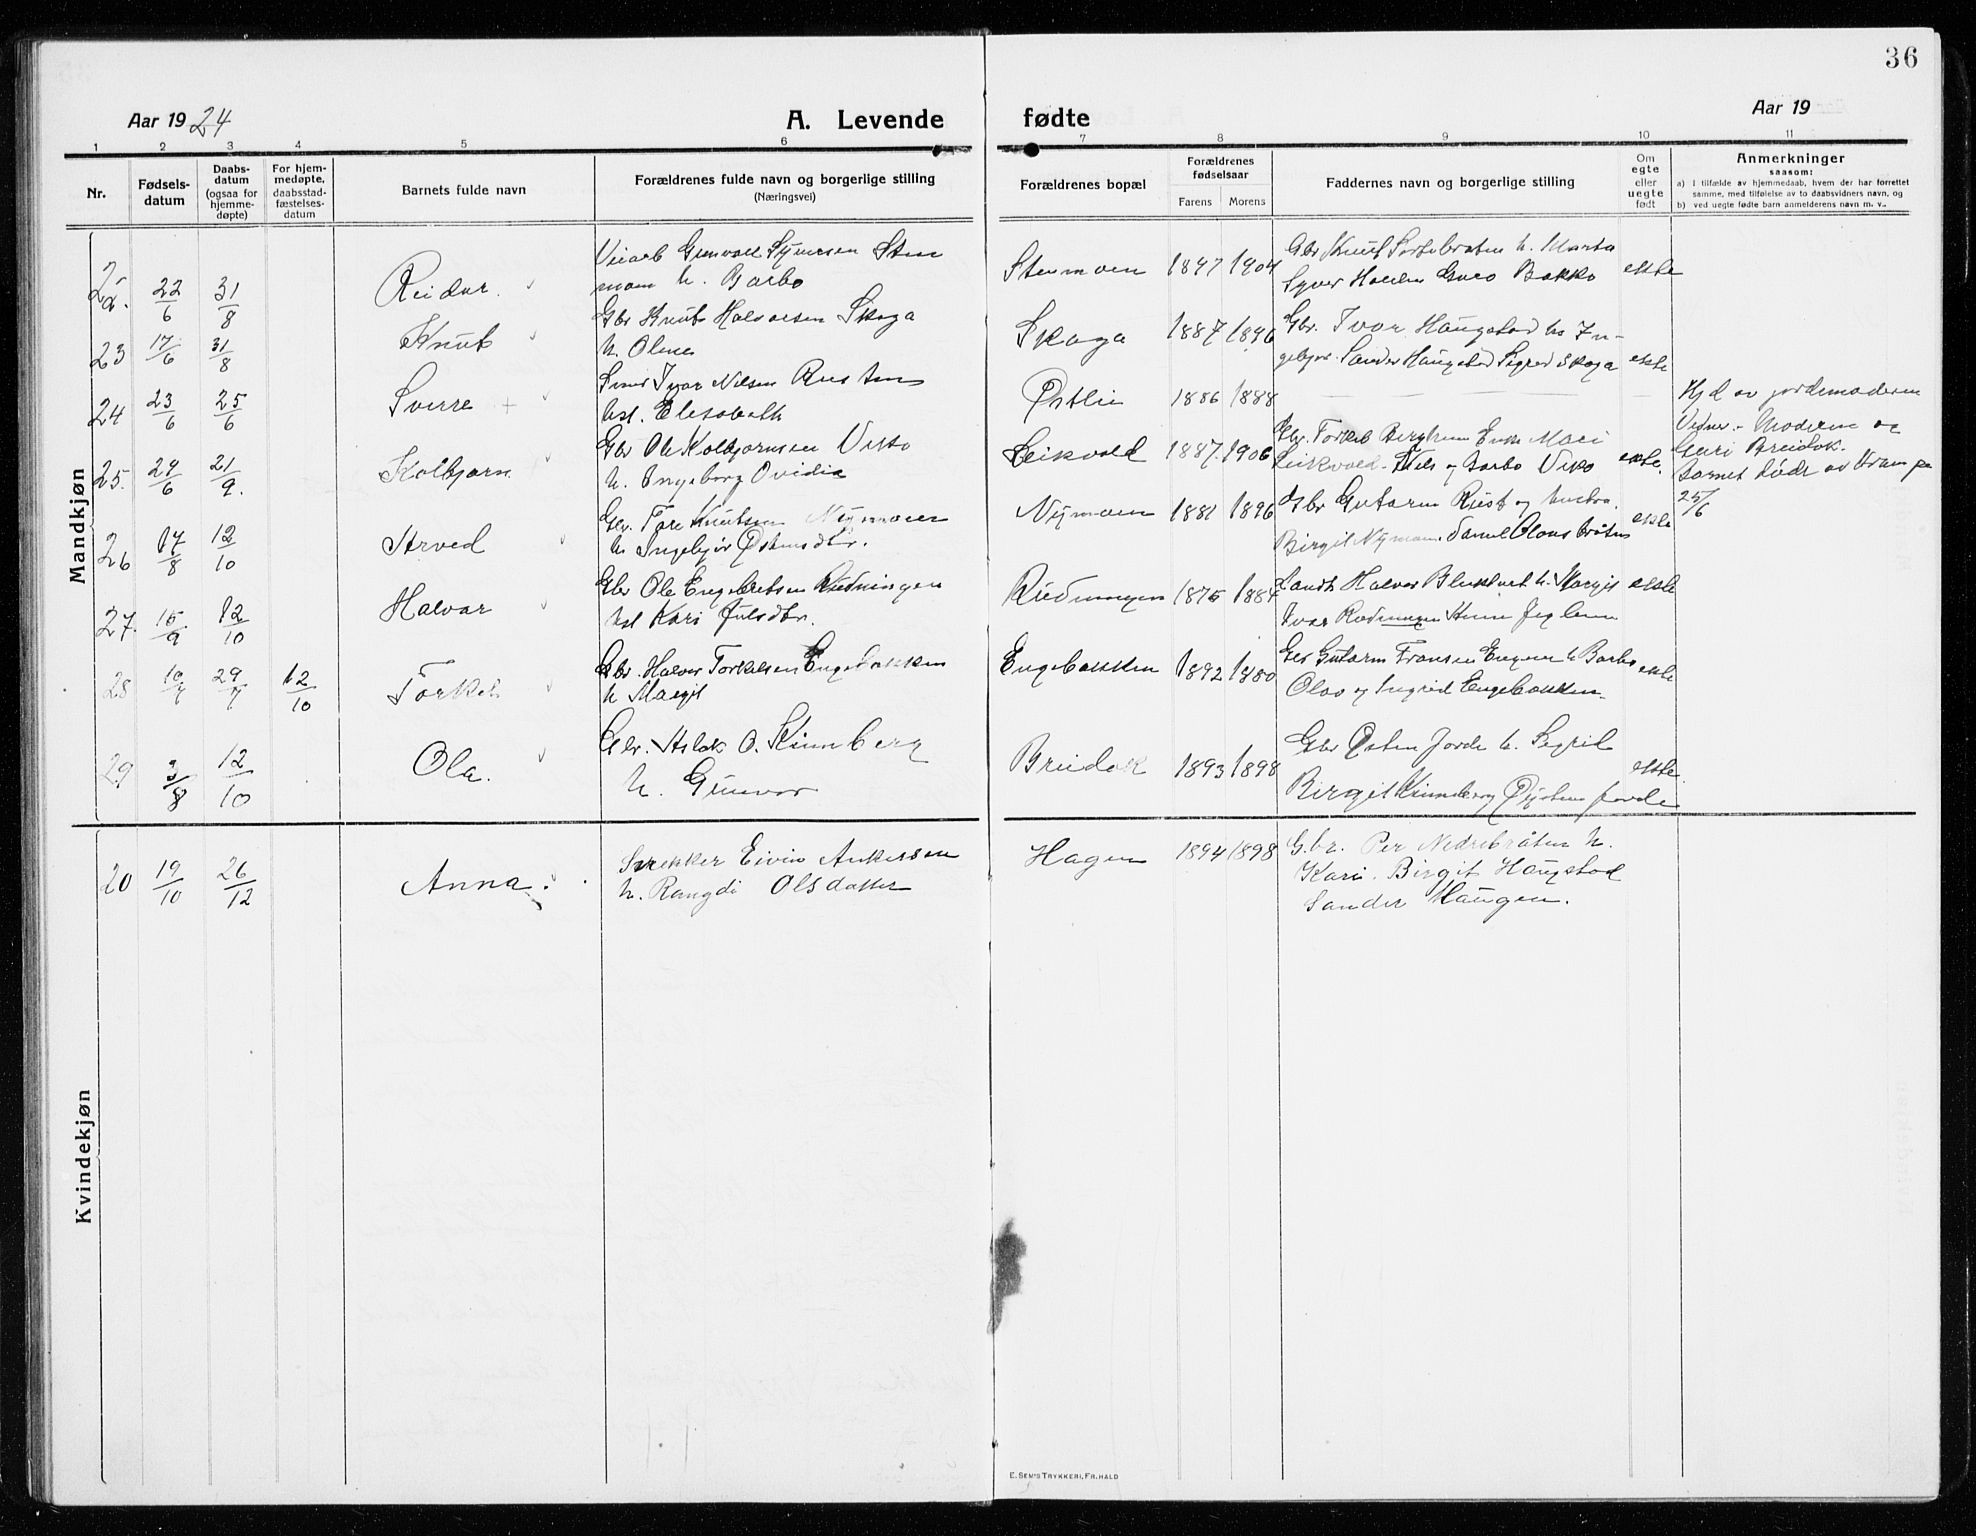 36
Aar 1924
A. Levende
fødte
Aar 19
1 2 3 4 5 6 7 8 9 10 11
Nr.
Fødsels-
datum
Daabs-
datum
(ogsaa for
hjemme-
døpte)
For hjem-
medøpte,
daabsstad-
fæstelses-
datum
Barnets fulde navn
Forældrenes fulde navn og borgerlige stilling
(Næringsvei)
Forældrenes bopæl
Forældrenes
fødselsaar
Farens Morens
Faddernes navn og borgerlige stilling
Om
egte
eller
uegte
født
Anmerkninger
saasom:
a) i tilfælde av hjemmedaab, hvem der har forrettet
samme, med tilføielse av to daabsvidners navn, og
b) ved uegte fødte barn anmelderens navn m. v..
Mandkjøn
22. 22/6 31/8 Reidar. Stenmoen 1897 1904 ekte
Gbr Knut Sortebråten h. Marta
h. Barbo
23 17/6 31/8 Knut
Gbr Knut Halvorsen Skaga
h. Olene
Skaga 1887 1896
Gbr. Ivar Haugstad h. In-
gebjør Sander Haugstad Sigrid Skaga ekte
24 23/6 25/6 Sverre +
Smed Ivar Nilsen Rusten
hst. Elisabeth
Østlie 1886 1888
Hjd av jordmoderen
Vidner. Moderen og
Guri Breidok.
Barnet døde av Krampe
25/6
25. 29/6 21/9. Kolbjørn
Gbr Ole Kolbjørnsen Viko
h. Ingeborg Ovidia
Leikvold 1887. 1906
Leikvold. Niels og Barbo Viko ekte.
26 17/8 12/10 Arved
Gbr. Tore Knutsen Nymoen
h. Ingebjør Østensdtr.
Nymoen 1881 1896
Gbr Gutorm Rust og hustru
Birgit Nymoen. ekte
27. 15/9 12/10 Halvar
Gbr Ole Engebretsen Rudningen
hst Kari Julsdtr.
Rudningen 1875 1884
Ivar Rudningen Anne ekte
28 10/7 29/7 12/10 Torkel
Gbr. Halvor Torkelsen Engebakken
h Margit
Engebakken 1892 1880
Gbr Gutorm Fransen h Barbo
Olav og Ingrid Engebakken. ekte
29 3/8 12/10 Ola.
Gbr. Aslak O. Kinnberg
h. Gunvor
Breidok 1893 1898
Gbr Østen Jorde h. Sigrid
Birgit Kinnberg Øysten Jorde ekte
Kvindekjøn
20 19/10 26/12 Anna.
Snekker Eivin Ankersen
h. Rangdi Olsdatter
Hagen 1894 1898
G.br. Per Nedrebråten h.
Kari. Birgit Haugstad
Sander Haugen.
E. SEM'S TRYKKERI, FR.HALD